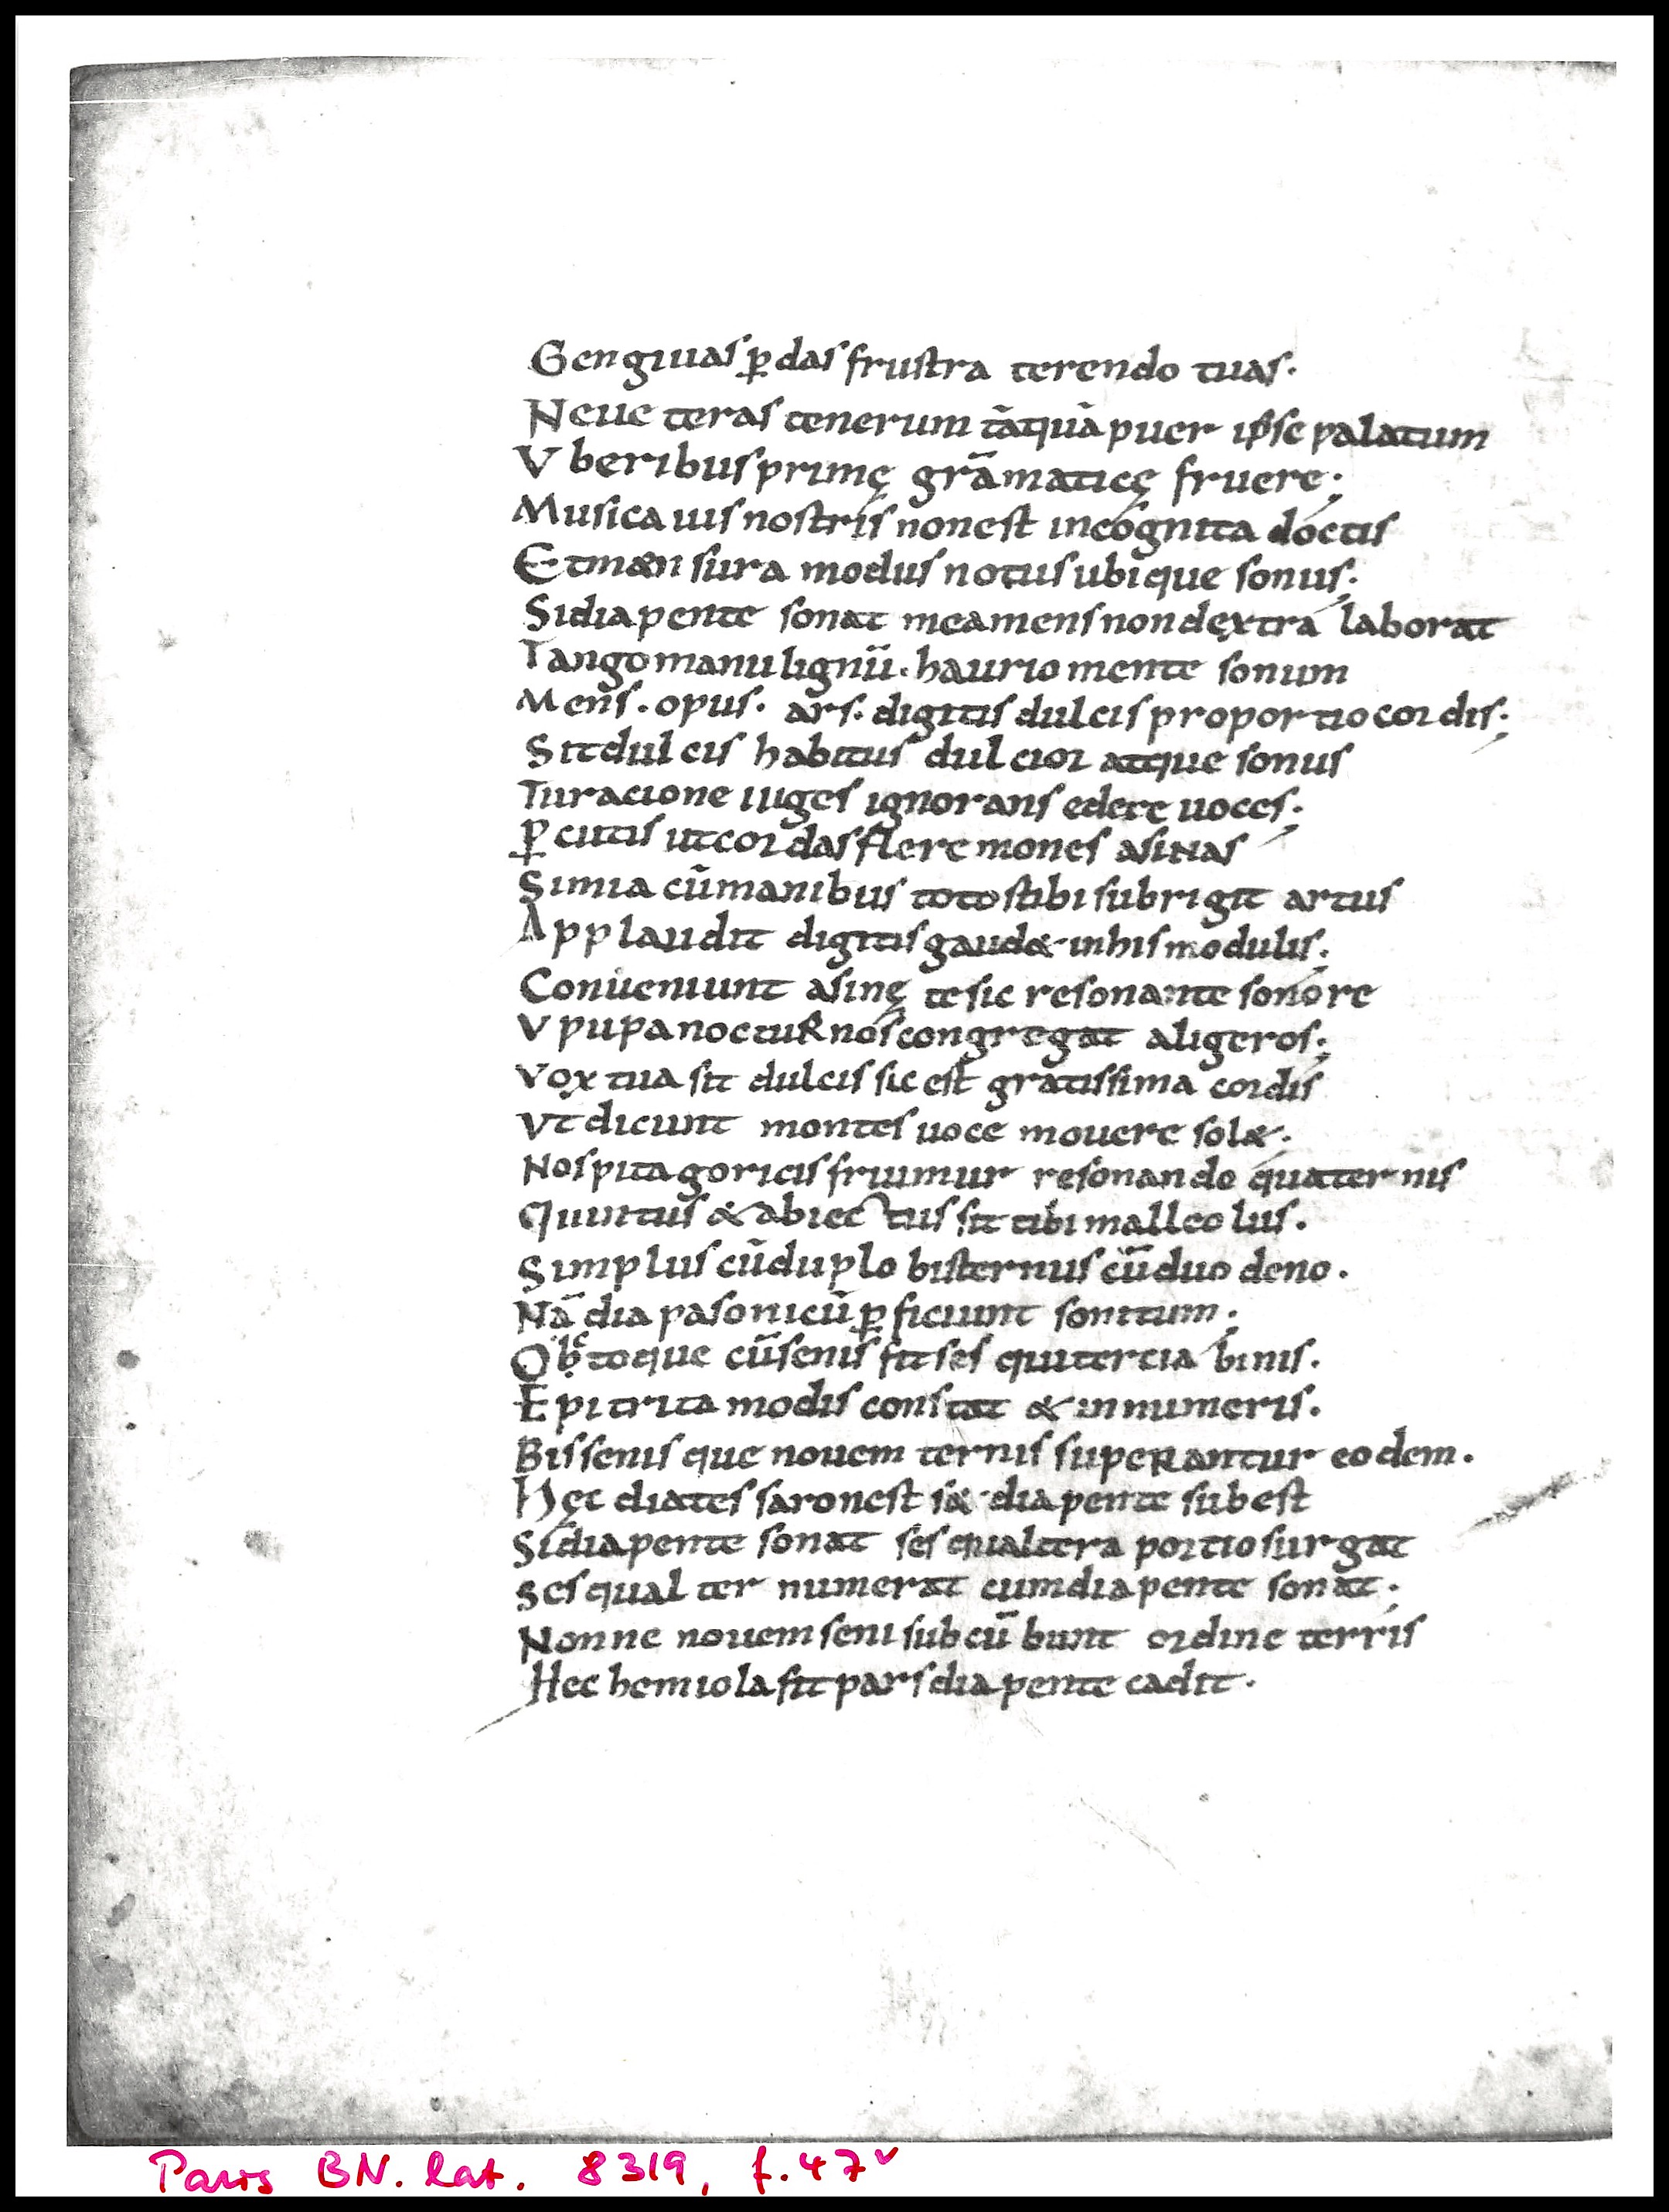 Gengiuas p̱das frustra terendo tuas.
Neue teras tenerum tāquā puer ipse palatum
Vberibus primę grāmaticę fruere;
Musica uis nostris non est incognita doctis
Et mænsura modus notus ubique sonus;
Si diapente sonat mea mens non dęxtra laborat
Tango manu lignū. haurio mente sonum
Mens. opus. ars. digitis dulcis proportio cordis;
Sit dulcis habitus dulcior atque sonus
Tu racione iuges ignorans edere uoces;
p̱cutis ut cordas flere mones asinas
Simia cū manibus totos tibi subrigit artus
Applaudit digitis gaud& in his modulis;
Conueniunt asinę te sic resonante sonore
Vpupa nocturnos congregat aligeros;
Vox tua sit dulcis sic est gratissima cordis
Vt dicunt montes uoce mouere sol&;
Nos pitagoricis friumur resonando quaternis
Quintus & abiectus sit tibi malleolus.
Simplus cū duplo bisternus cū duo deno.
Nā diapasonicū p̱ficiunt sonitum;
toque cū senis fit sesquitercia binis.
Epitrita modis constat & in numeris.
Bis senis que nouem ternis superantur eodem.
Hęc diatessaron est s& diapente subest
Si diapente sonat sesqualtera portio surgat
Sesqualter numerat cum diapente sonat;
Nonne nouem seni subcūbunt ordine terris
Hec hemiola fit pars diapente cadit.
Paris BN. lat. 8319, f.47v